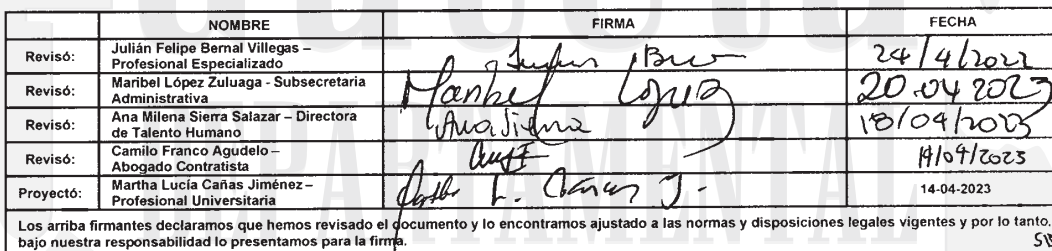 NOMBRE FIRMA FECHA
Revisó: Julián Felipe Bernal Villegas –
Profesional Especializado
24/4/2022
Revisó: Maribel López Zuluaga - Subsecretaria
Administrativa
Maribel López 20.04 2023
Revisó: Ana Milena Sierra Salazar – Directora
de Talento Humano
Ana Sierra 18/04/2023
Revisó: Camilo Franco Agudelo –
Abogado Contratista
19/04/2023
Proyectó: Martha Lucía Cañas Jiménez –
Profesional Universitaria
L. Cañas J. 14-04-2023
Los arriba firmantes declaramos que hemos revisado el documento y lo encontramos ajustado a las normas y disposiciones legales vigentes y por lo tanto,
bajo nuestra responsabilidad lo presentamos para la firma.
DEPARTAMENTAL